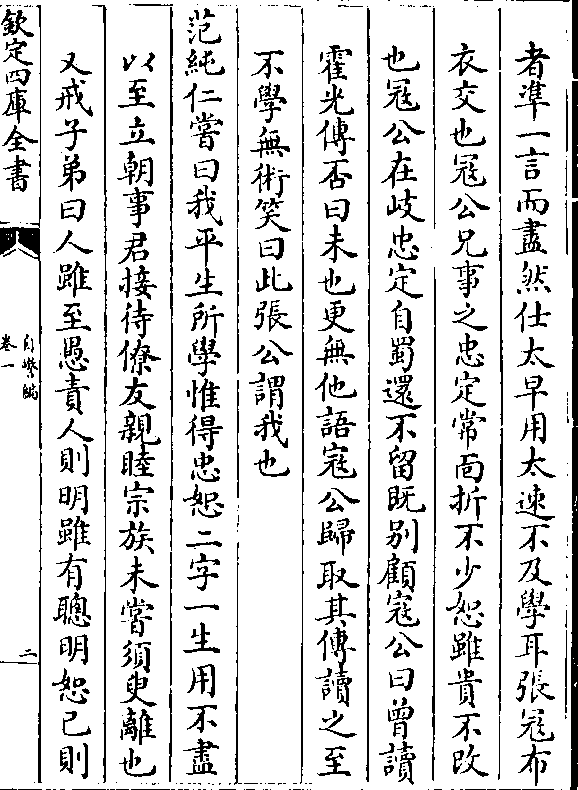 者準一言而盡然仕太早用太速不及學耳張冦布
衣交也冦公兄事之忠定常面折不少恕雖貴不改
也冦公在岐忠定自蜀還不留既别顧寇公曰曽讀
霍光傳否曰未也更無他語寇公歸取其傳讀之至
不學無術笑曰此張公謂我也
范純仁嘗曰我平生所學惟得忠恕二字一生用不盡
以至立朝事君接待僚友親睦宗族未嘗須臾離也
又戒子弟曰人雖至愚責人則明雖有聰明恕己則
欽定四庫全書
自警編
卷一
二